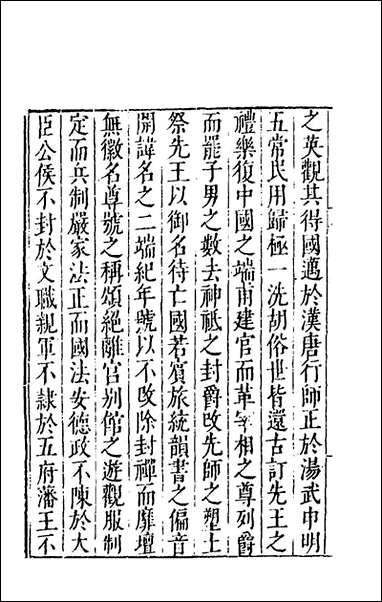 之英觀其得國邁於漢唐行師正於湯武申明
五常民用歸極一洗胡俗世皆還古訂先王之
禮樂復中國之端甫建官而革宰相之尊列爵
而罷子男之數去神祗之封爵改先師之塑土
祭先王以御名待亡國若賔旅統韻書之偏音
開諱名之二端紀年號以不改除封禪而靡壇
無徽名尊號之稱頌絕離宫别館之遊觀服制
定而兵制嚴家法正而國法安德政不陳於大
臣公侯不封於文職親軍不隷於五府藩王不